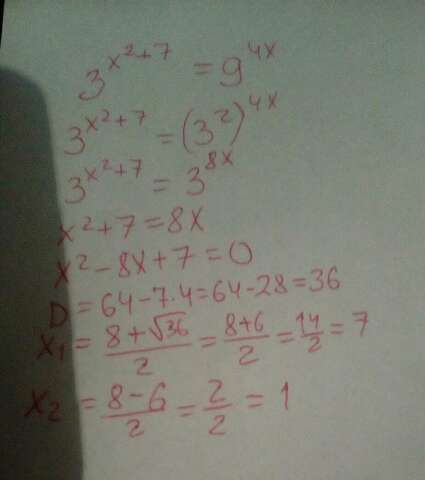 3^{x^2+7} = 9^{4x}
3^{x^2+7} = (3^2)^{4x}
3^{x^2+7} = 3^{8x}
x^2+7 = 8x
x^2-8x+7=0
D = 64-7·4=64-28=36
x_1 = \frac{8+\sqrt{36}}{2} = \frac{8+6}{2} = \frac{14}{2} = 7
x_2 = \frac{8-6}{2} = \frac{2}{2} = 1